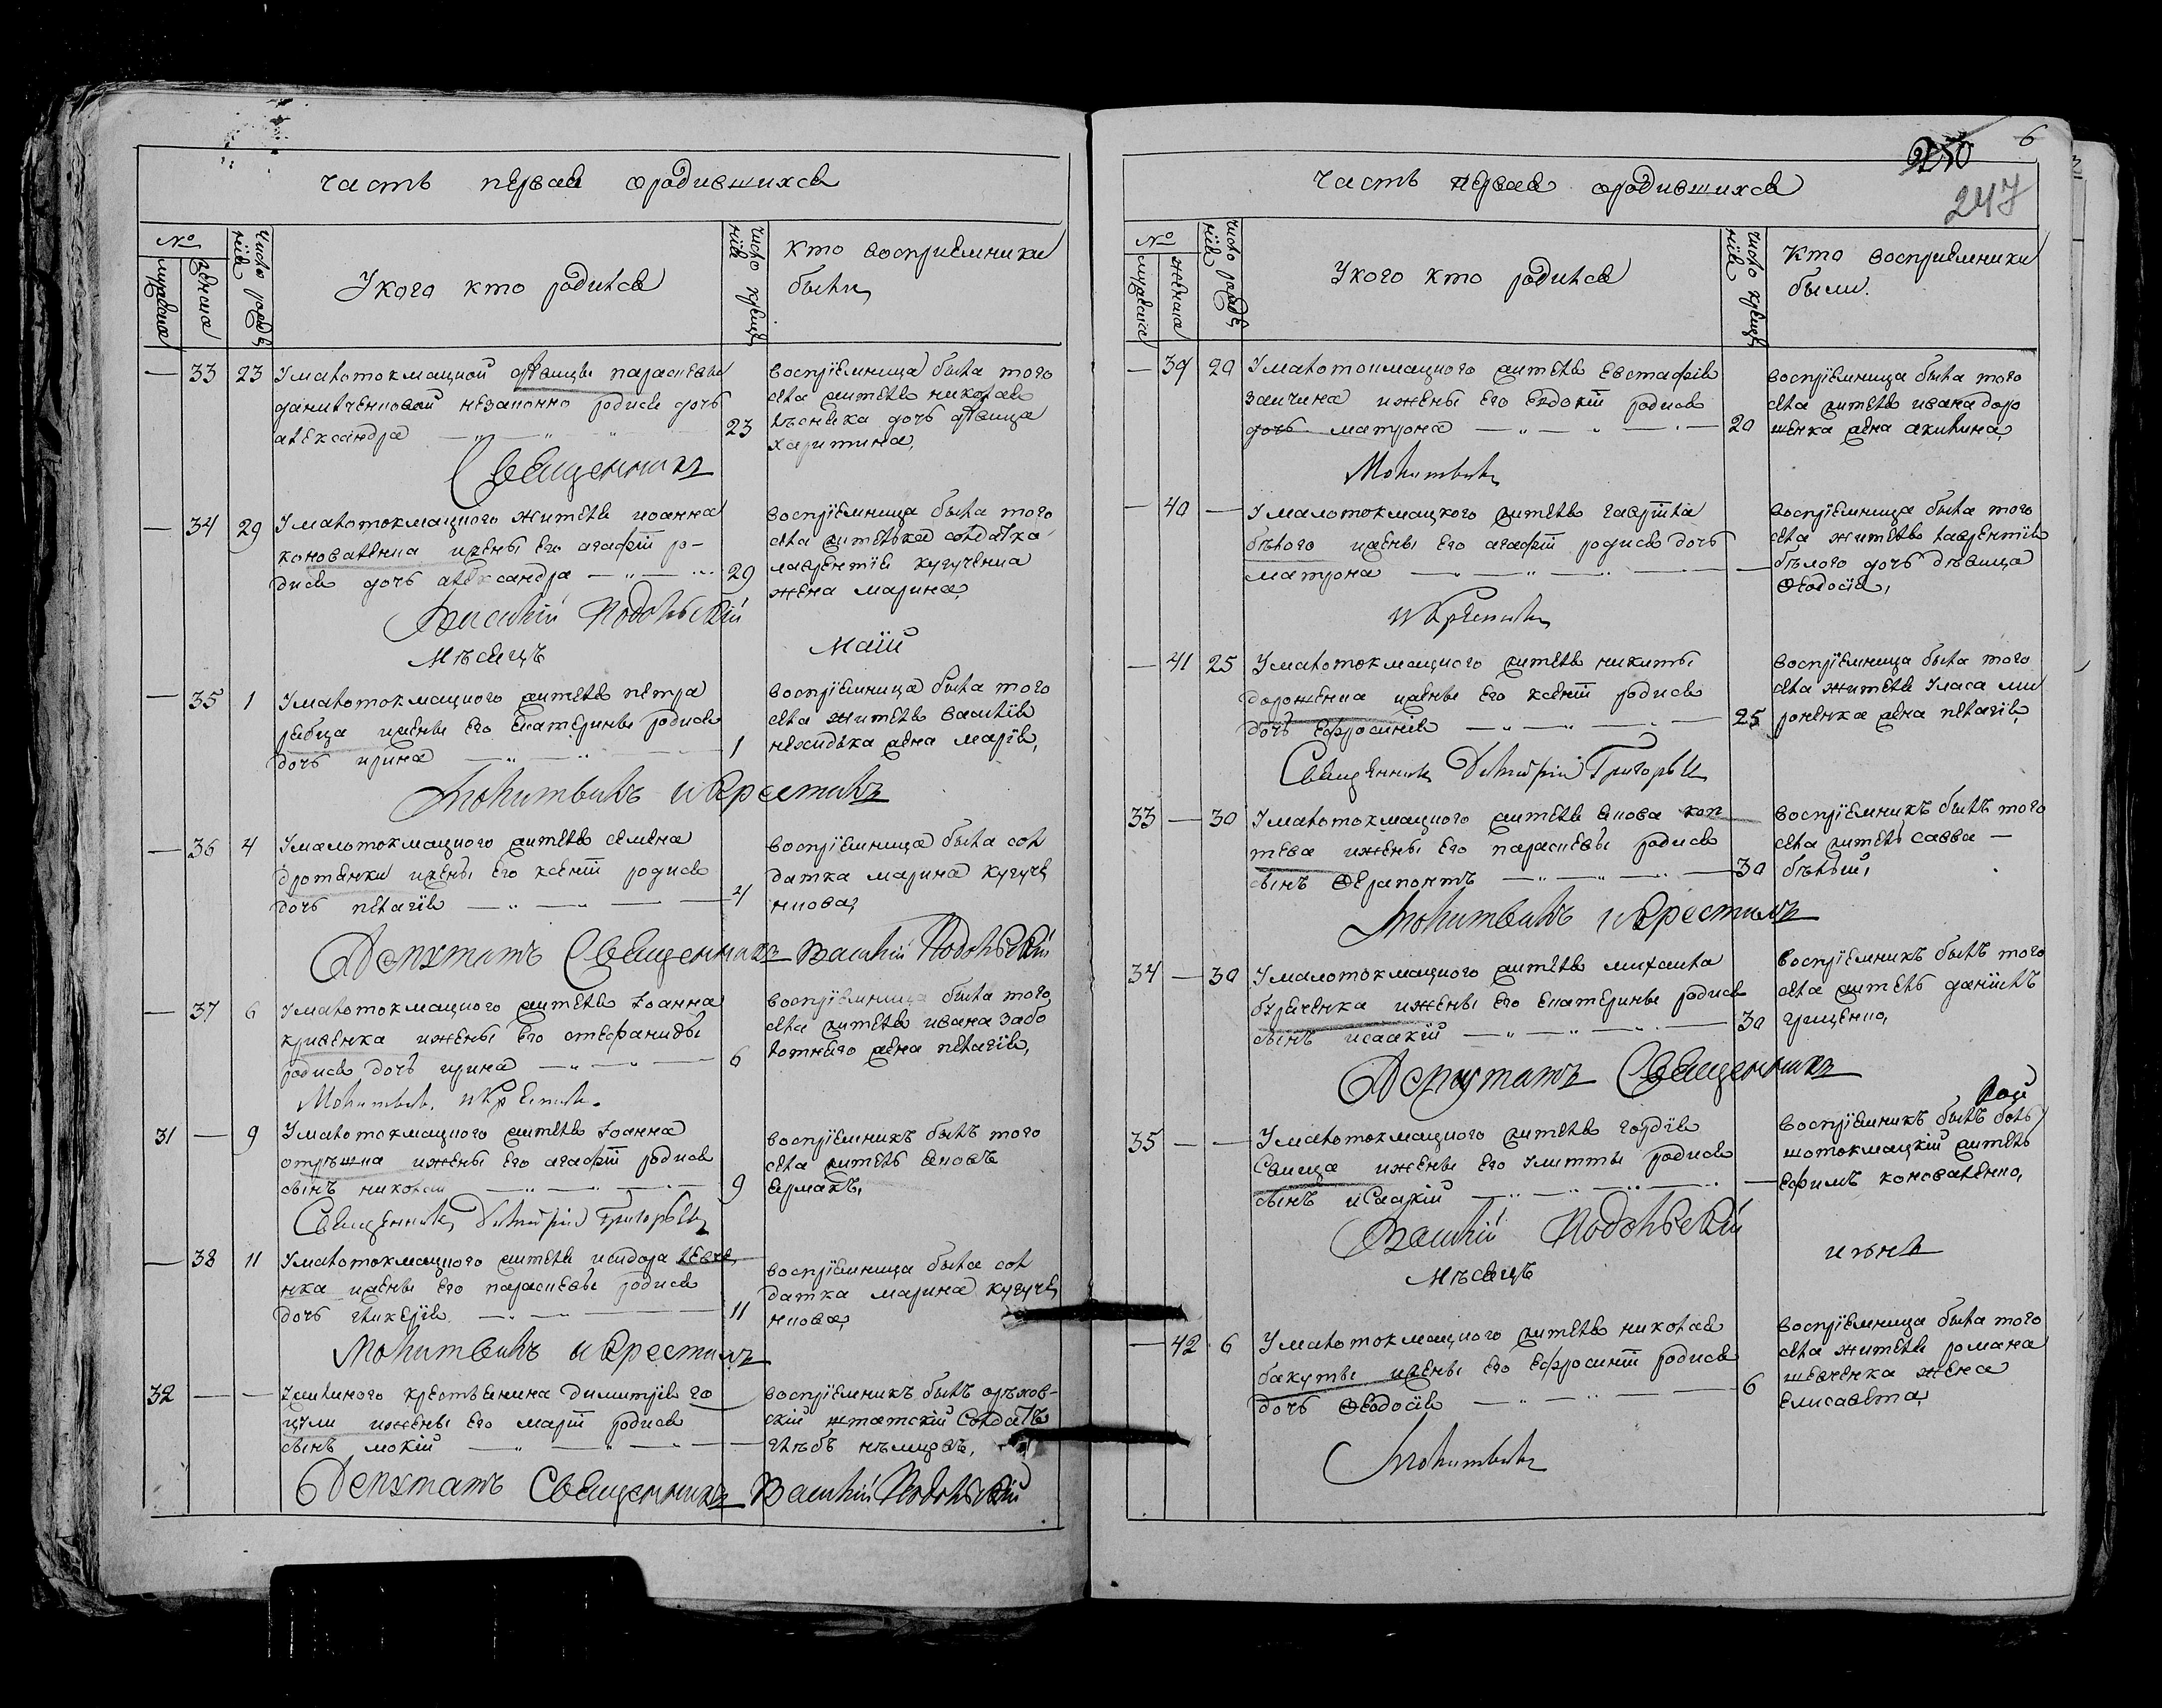 часть первая ородившихся
№
мужеска
женска
число рожде
нія
Укого кто родился
число креще
нія
кто восприемники
были
— 33 23 Умалотокмацкой дѣвицы параскевы
данилченковой незаконно родися дочь
александра — 23
воспріемница была того
села жителя николая
лѣсника дочь дѣвица
харитина,
Священникъ
— 34 29 Умалотокмацкого жителя иоанна
коноваленка ижены его агафіи ро-
дися дочь александра — 29
воспріемница была того
села жителька солдатка
лаврентія кугученка
жена марина,
Василій Подольскій
Мѣсяцъ маій
— 35 1 Умалотокмацкого жителя петра
рабца ижены его екатерины родися
дочь ирина — 1
воспріемница была того
села жителя василія
нежидька жена марія,
Молитвилъ и крестилъ
— 36 4 Умалотокмацкого жителя семена
дротянки ижены его ксеніи родися
дочь пелагія — 4
воспріемница была сол
датка марина кугуче
нкова,
Депутатъ Священникъ Василій Подольскій
— 37 6 Умалотокмацкого жителя Іоанна
кривенка ижены его стефаниды
родися дочь ирина — 6
воспріемница была того
села жителя ивана забо
лотнего жена пелагія,
Молитвилъ и крестилъ
31 — 9 Умалотокмацкого жителя Іоанна
отрѣшка ижены его агафіи родися
сынъ николай — 9
воспріемникъ былъ того
села житель яковъ
ермакъ,
Священникъ Димитрій Григорьевъ
— 38 11 Умалотокмацкого жителя исидора левче
нка ижены его параскевы родися
дочь гликерія — 11
воспріемница была сол
датка марина кугуче
нкова,
Молитвилъ и крестилъ
32 — — крестьянина димитрія го
цули ижены его маріи родися
сынъ мокій —
воспріемникъ былъ орѣхов-
скій штатскій солдатъ
глѣбъ
Депутатъ Священникъ Василій Подольскій
250
6
247
часть первая ородившихся
№
мужеска
женска
число рожде
нія
Укого кто родился
число креще
нія
Кто восприемники
были.
— 39 20 Умалотокмацкого жителя евстафія
заичина ижены его евдокіи родися
дочь матрона — 20
воспріемница была того
села жителя ивана доро
шенка жена акилина,
Молитвилъ
— 40 — Умалотокмацкого жителя гавріила
бѣлого ижены его агафіи родися дочь
матрона —
воспріемница была того
села жителя лаврентія
бѣлого дочь дѣвица
Ѳеодосія,
и крестилъ
— 41 25 Умалотокмацкого жителя никиты
дорошенка ижены его ксеніи родися
дочь ефросинія — 25
воспріемница была того
села жителя власа ми
роненка жена пелагія,
Священникъ Димитрій Григорьевъ
33 — 30 Умалотокмацкого жителя якова коп
тева ижены его параскевы родися
сынъ Ѳерапонтъ — 30
воспріемникъ былъ того
села житель савва —
бѣлый,
Молитвилъ и крестилъ
34 — 30 Умалотокмацкого жителя михаила
буряченка ижены его екатерины родися
сынъ исаакій — 30
воспріемникъ былъ того
села житель даніилъ
грищенко,
Депутатъ Священникъ
35 — — Умалотокмацкого жителя гордія
ижены его родися
сынъ исаакій —
воспріемникъ былъ боль
шотокмацкій житель
ефимъ коноваленко,
Василій Подольскій
Мѣсяцъ июнь
— 42 6 Умалотокмацкого жителя николая
бакуты ижены его ефросиніи родися
дочь Ѳеодосія — 6
воспріемница была того
села жителя романа
шевченка жена
елисавета,
Молитвилъ